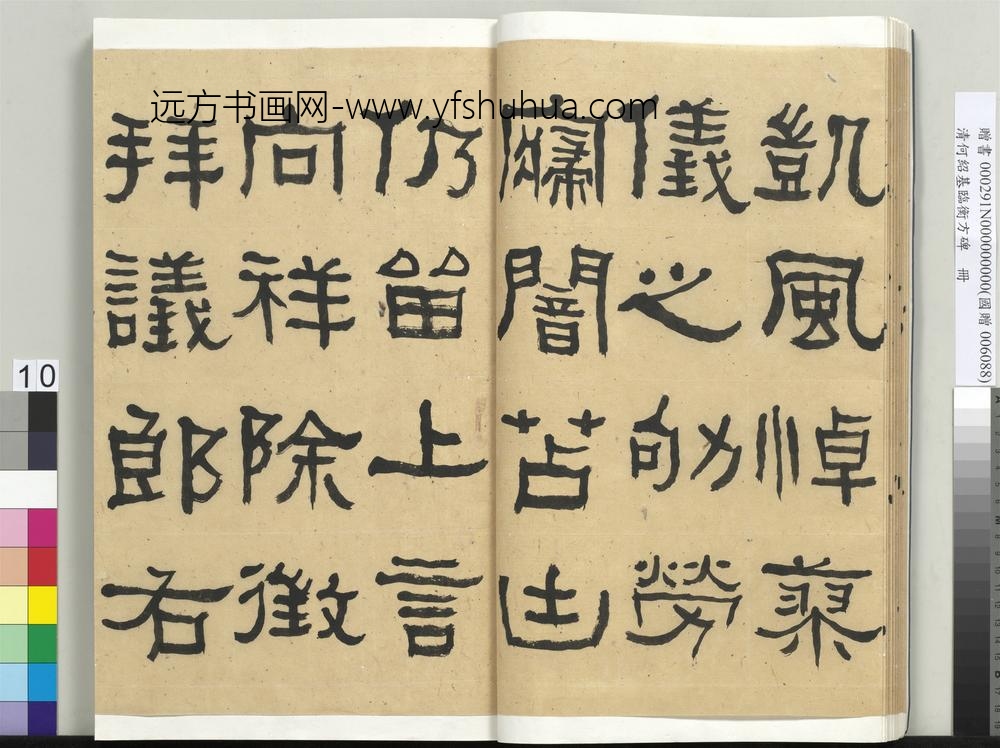 远方书画网-www.yfshuhua.com
凱風悼
儀之劬勞
寢闇苫凷
仍留上言
向祥除徵
拜議郎右
贈書 000291N000000000(國贈 006088)
清何紹基臨衡方碑 冊
10